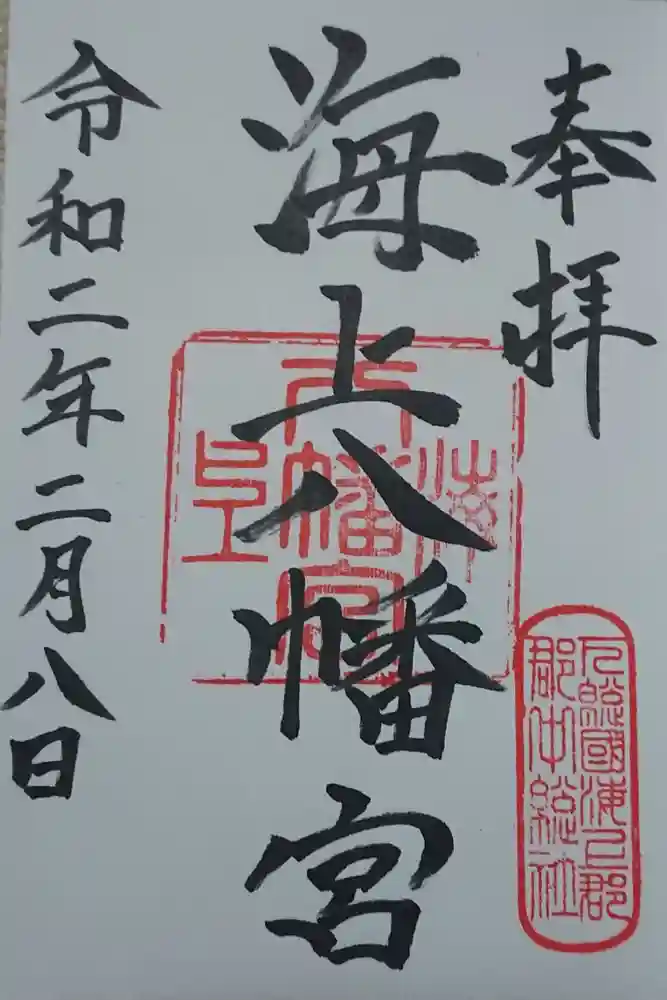 奉拝
海上八幡宮
令和二年二月八日
海上
八幡宮
下総國海上郡
郡中総社